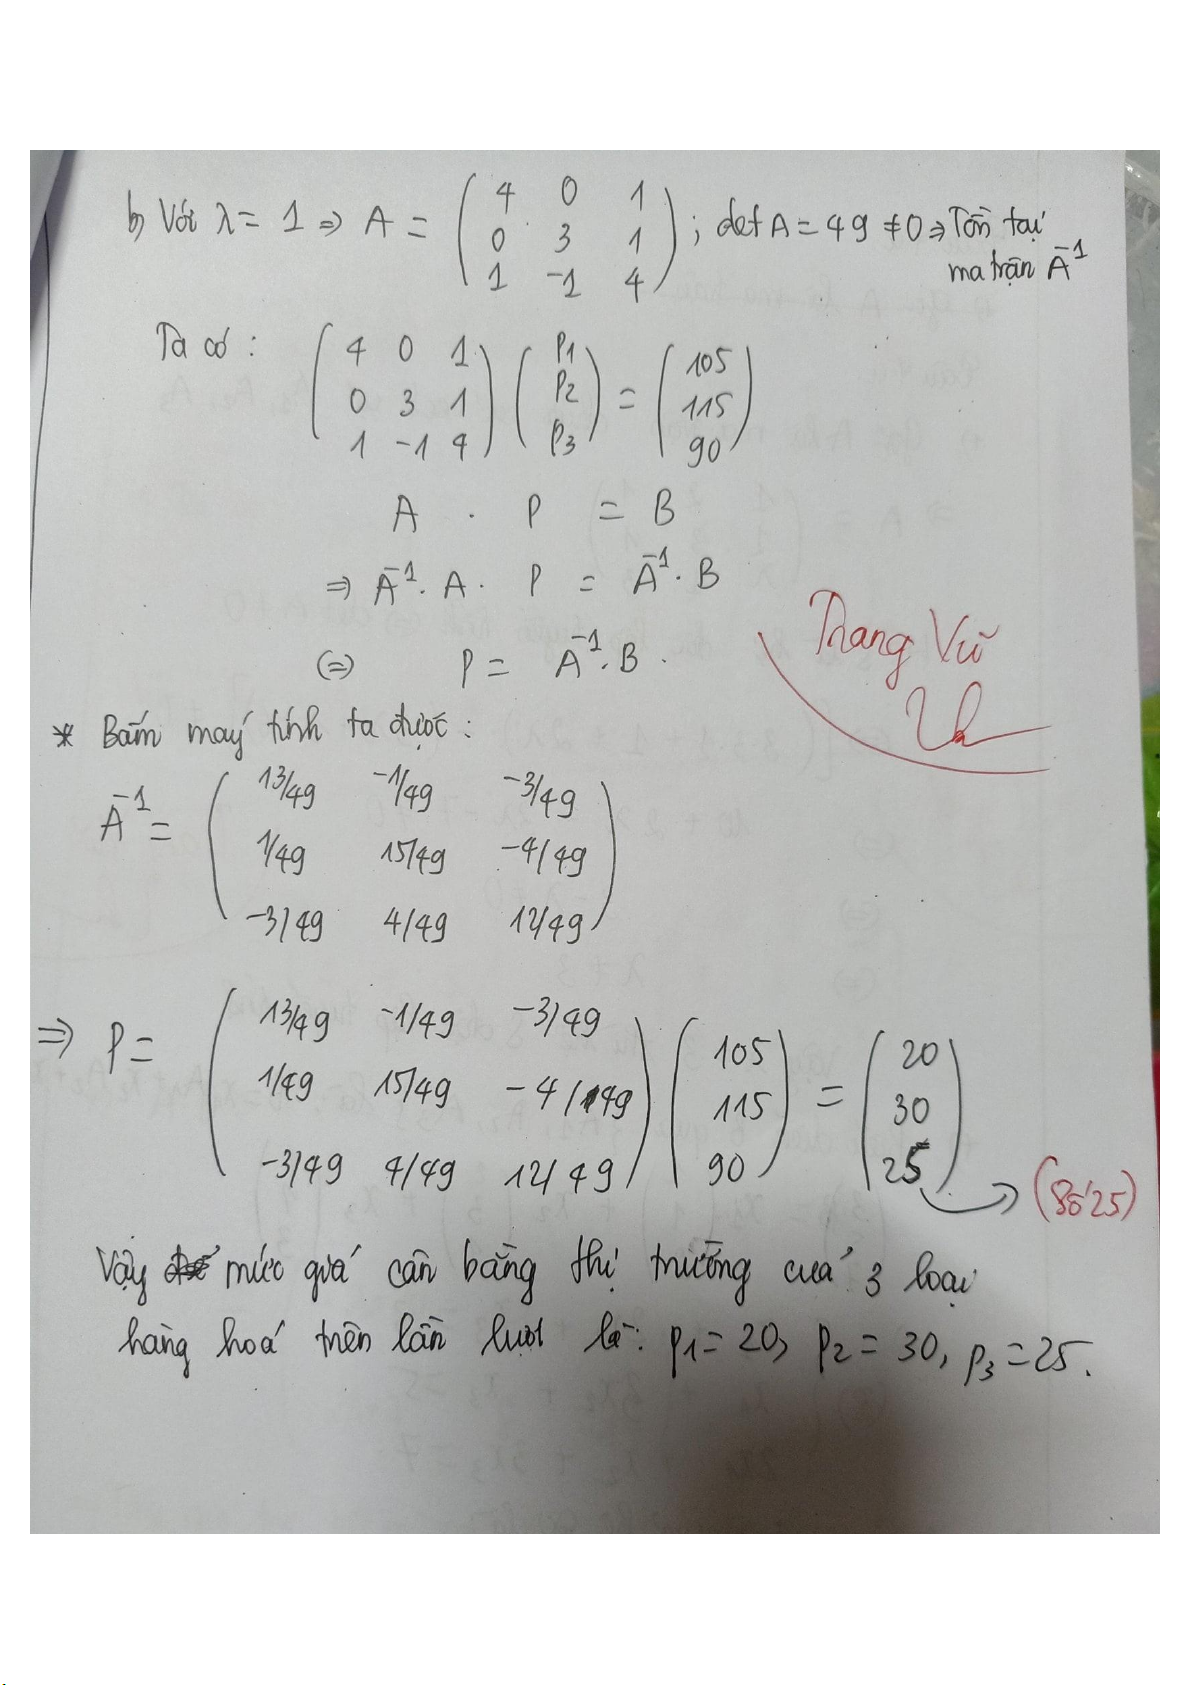 b) Với λ = 1 => A = ( 4 0 1
0 3 1
1 -1 4 ) ; det A = 49 ≠ 0 => Tồn tại
ma trận A⁻¹
Ta có : ( 4 0 1
0 3 1
1 -1 4 ) ( P1
P2
P3 ) = ( 105
115
90 )
A . P = B
=> A⁻¹. A . P = A⁻¹. B
(=) P = A⁻¹. B .
Trang Vũ
* Bấm máy tính ta được :
A⁻¹ = ( 13/49 -1/49 -3/49
1/49 15/49 -4/49
-3/49 4/49 12/49 )
=> P = ( 13/49 -1/49 -3/49
1/49 15/49 -4/49
-3/49 4/49 12/49 ) ( 105
115
90 ) = ( 20
30
25 ) → (Số 25)
Vậy mức giá cân bằng thị trường của 3 loại
hàng hoá trên lần lượt là: p1 = 20, p2 = 30, p3 = 25.